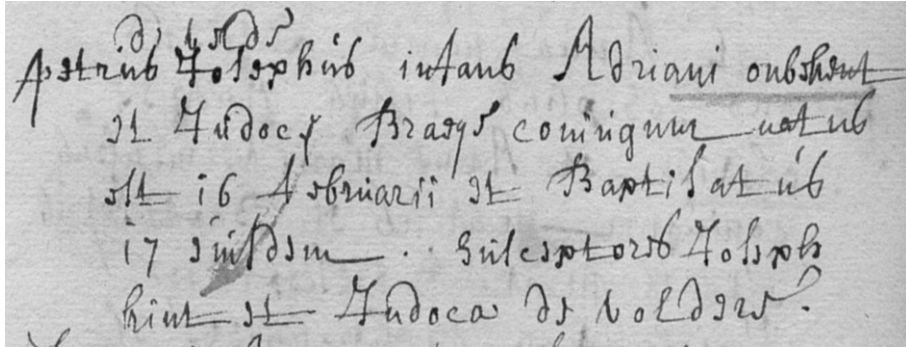 petrus Josephus infans Adriani onbehent
et Judocæ Braeys coniugum natus
est 16 februarii et Baptisatus
17 eiusdem susceptores Joseph
hint et Judoca de volders